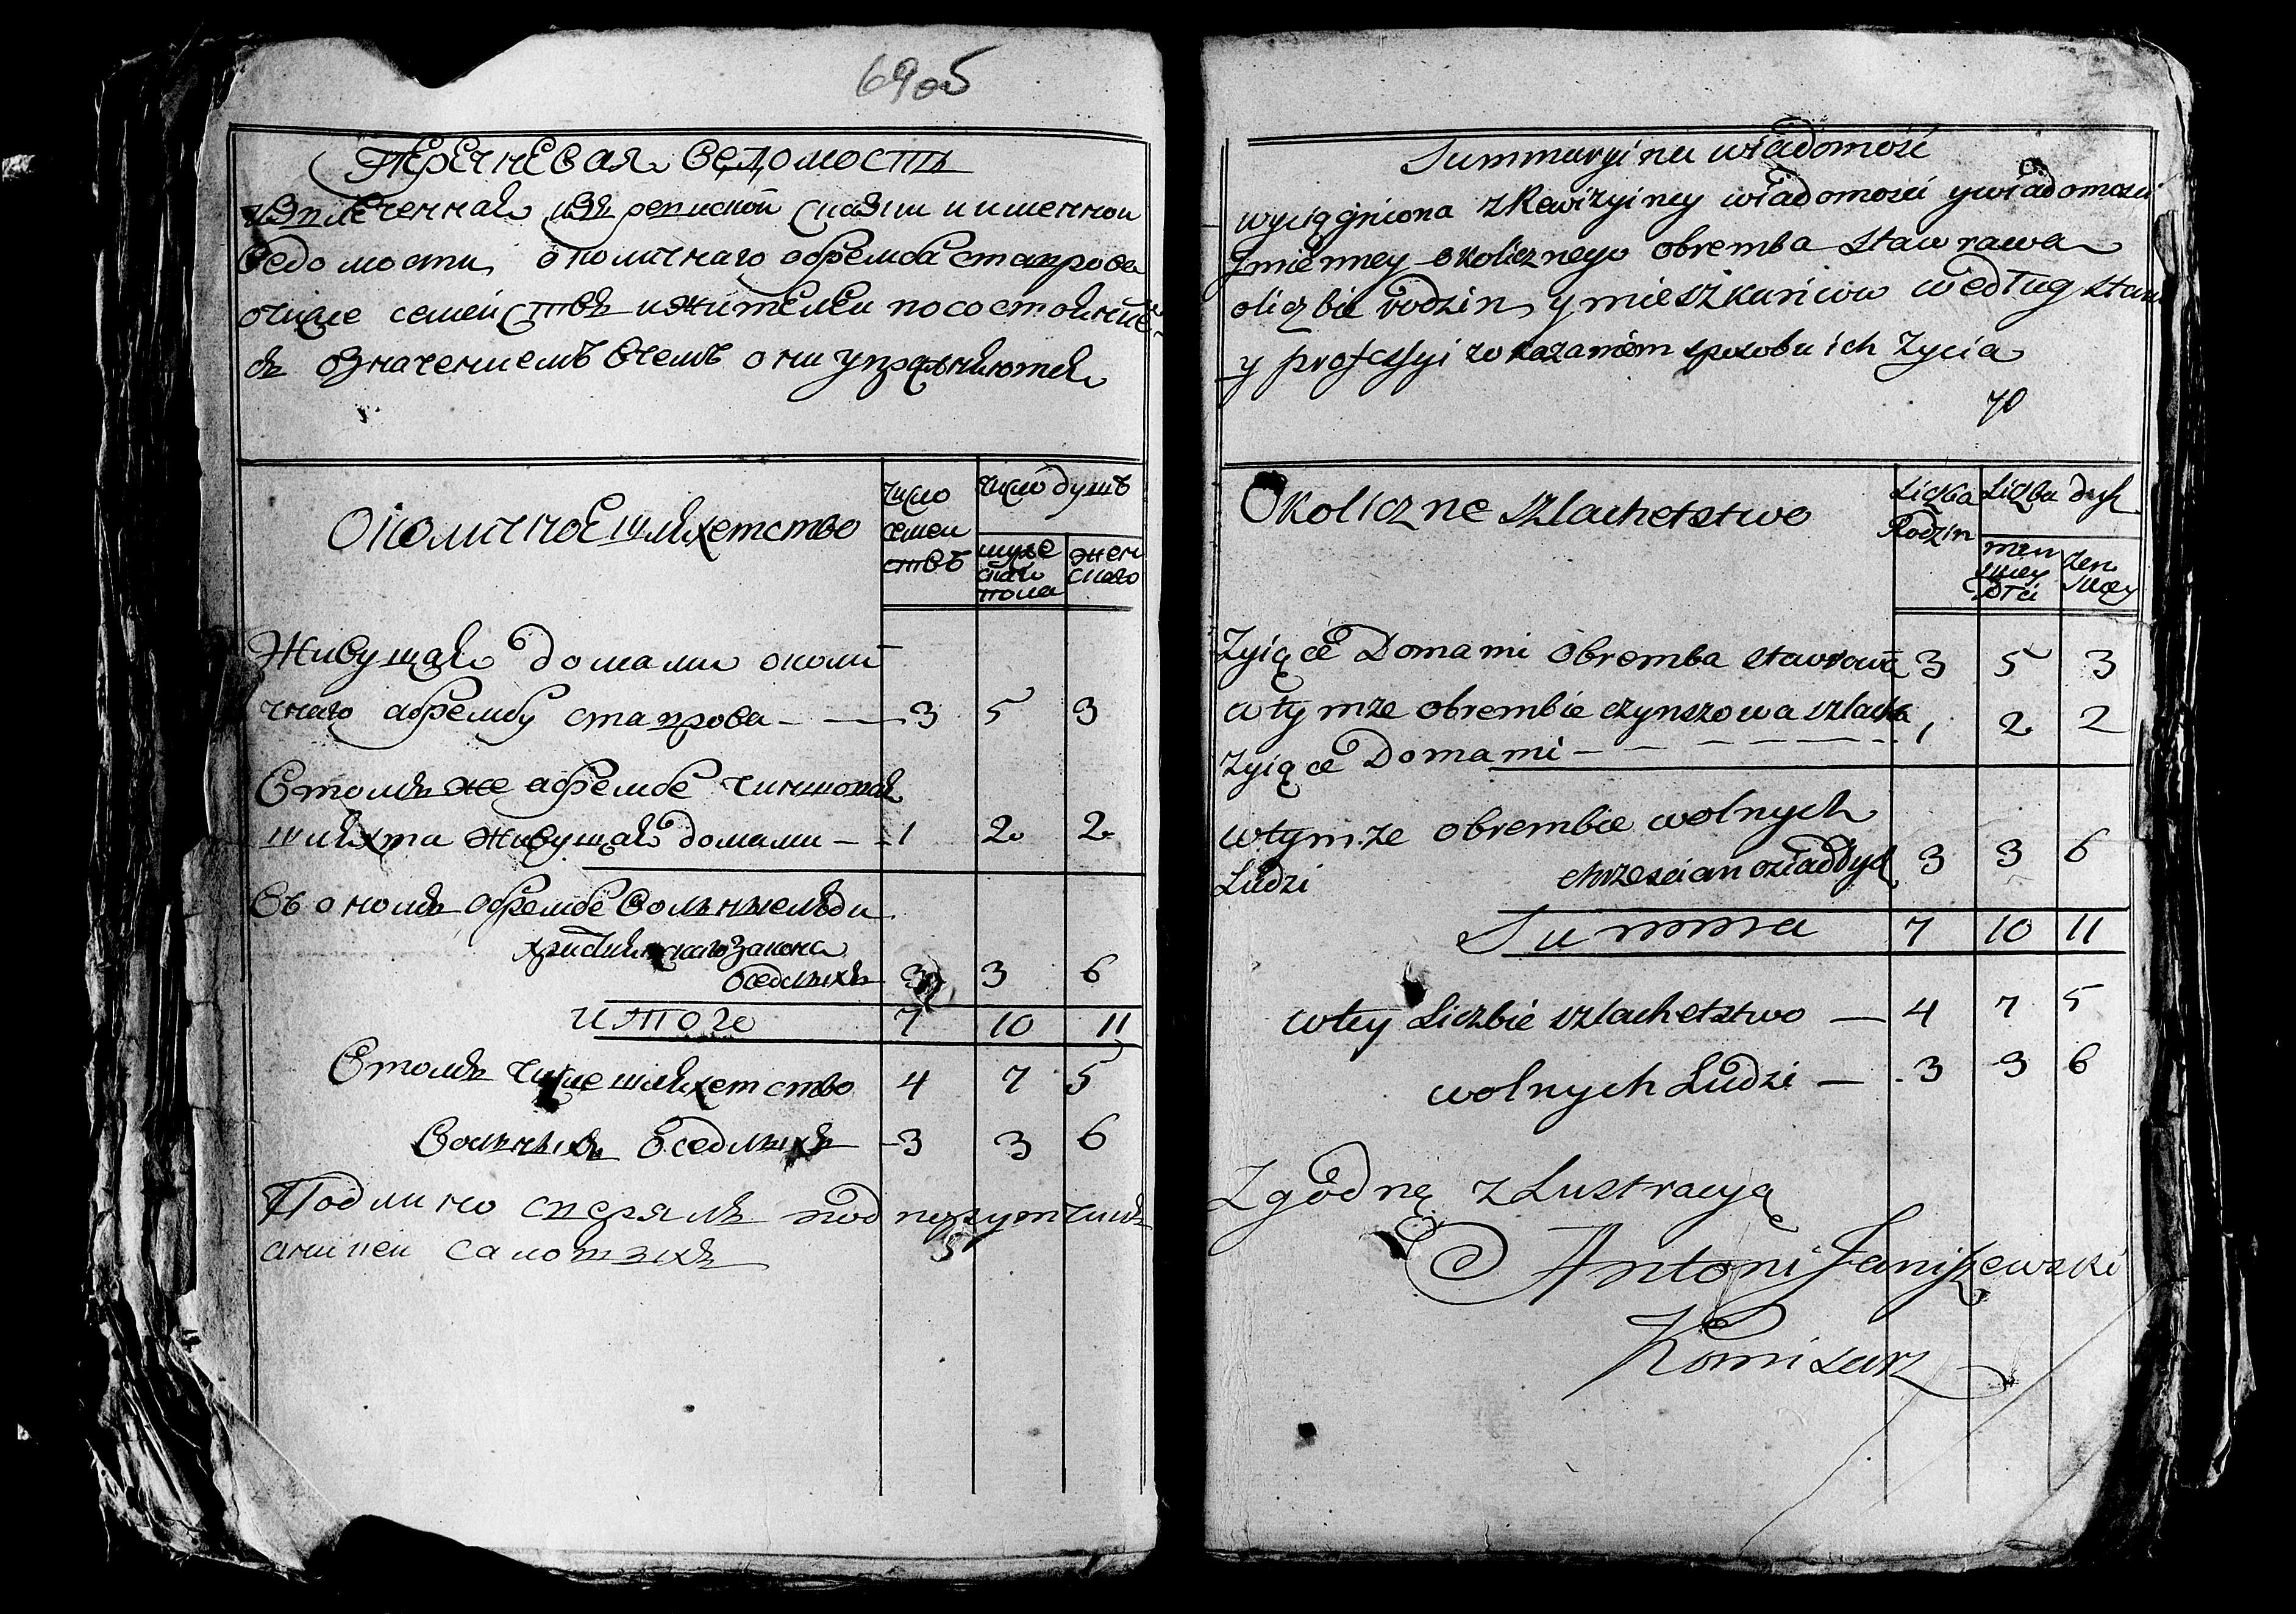 69об
Перечневая ведомость
извлеченная изъ ревиской сказки и имянной
ведомости околичнаго обремба ставрова
очисле семействъ ижителей посостоянию
съ означениемъ вчемъ они упражняются
Околичное шляхетство
число семействъ
число душъ
мужескаго пола
женскаго
Живущая домами околи
чнаго абрембу ставрова - — 3 5 3
Втомъ же абрембе чиншовая
шляхта живущая домами - - 1 2 2
Въ ономъ обрембе вольные люди
християнскаго закона
оседлыхъ 3 3 6
итого 7 10 11
Втомъ числе шляхетство 4 7 5
Вольныхъ оседлыхъ - 3 3 6
Подлино сверялъ подпорутчикъ

Summaryina wiadomość
wyciągniona z Rewizyiney wiadomości y wiadomości
Jmienney okolicznego obremba Stawrawa
oliczbie rodzin y mieszkańcow według stanu
y professyi zokazaniem sposobu ich zycia
70
Okoliczne szlachetstwo
Liczba Rodzin
Liczba dusz
men skiey płci
żen skiey
Zyiące Domami Obremba Stawrowa 3 5 3
w tymze obrembie czynszowa szlachta 1 2 2
zyiące Domami - — — — — — —
w tymze obrembie wolnych
Ludzi chrzescian osiadłych 3 3 6
Summa 7 10 11
w tey Liczbie szlachetstwo — 4 7 5
wolnych Ludzi — 3 3 6
Zgodne z Lustracyą
Antoni Janiszewski
Komisarz